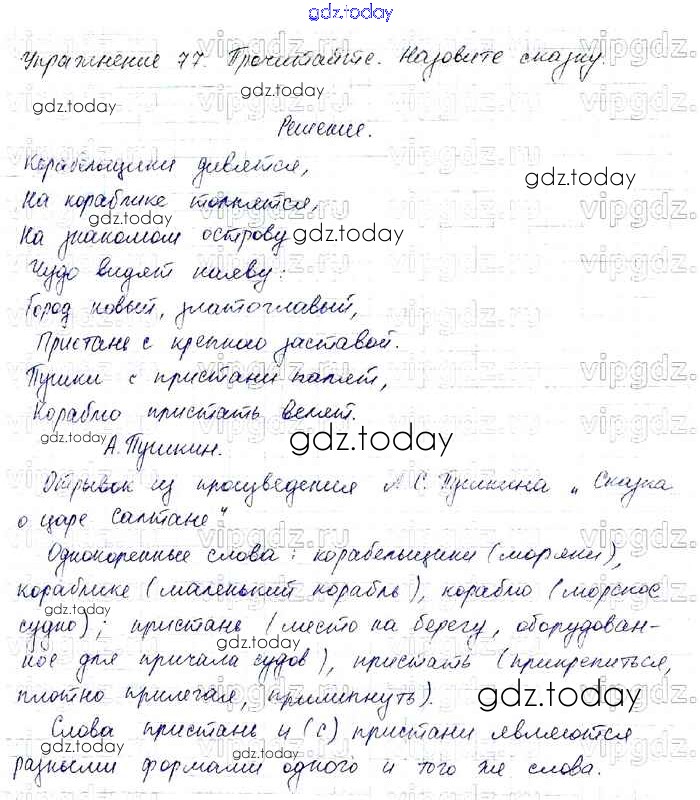 gdz.today
Упражнение 77. Прочитайте. Назовите сказку.
gdz.today gdz.today
Решение.
Корабельщики дивятся,
gdz.today
На кораблике толпятся,
gdz.today
На знакомом острову
gdz.today
Чудо видят наяву:
Город новый, златоглавый,
Пристань с крепкою заставой.
Пушки с пристани палят,
Кораблю пристать велят.
А. Пушкин.
gdz.today
Отрывок из произведения А.С. Пушкина „Сказка
о царе Салтане"
Однокоренные слова: корабельщики (моряки),
кораблике (маленький корабль), кораблю (морское
gdz.today
судно); пристань (место на берегу, оборудован-
ное для причала судов), пристать (прикрепиться,
плотно прилегая, прилипнуть).
gdz.today
Слова пристань и (с) пристани являются
gdz.today
разными формами одного и того же слова.
vipgdz.ru